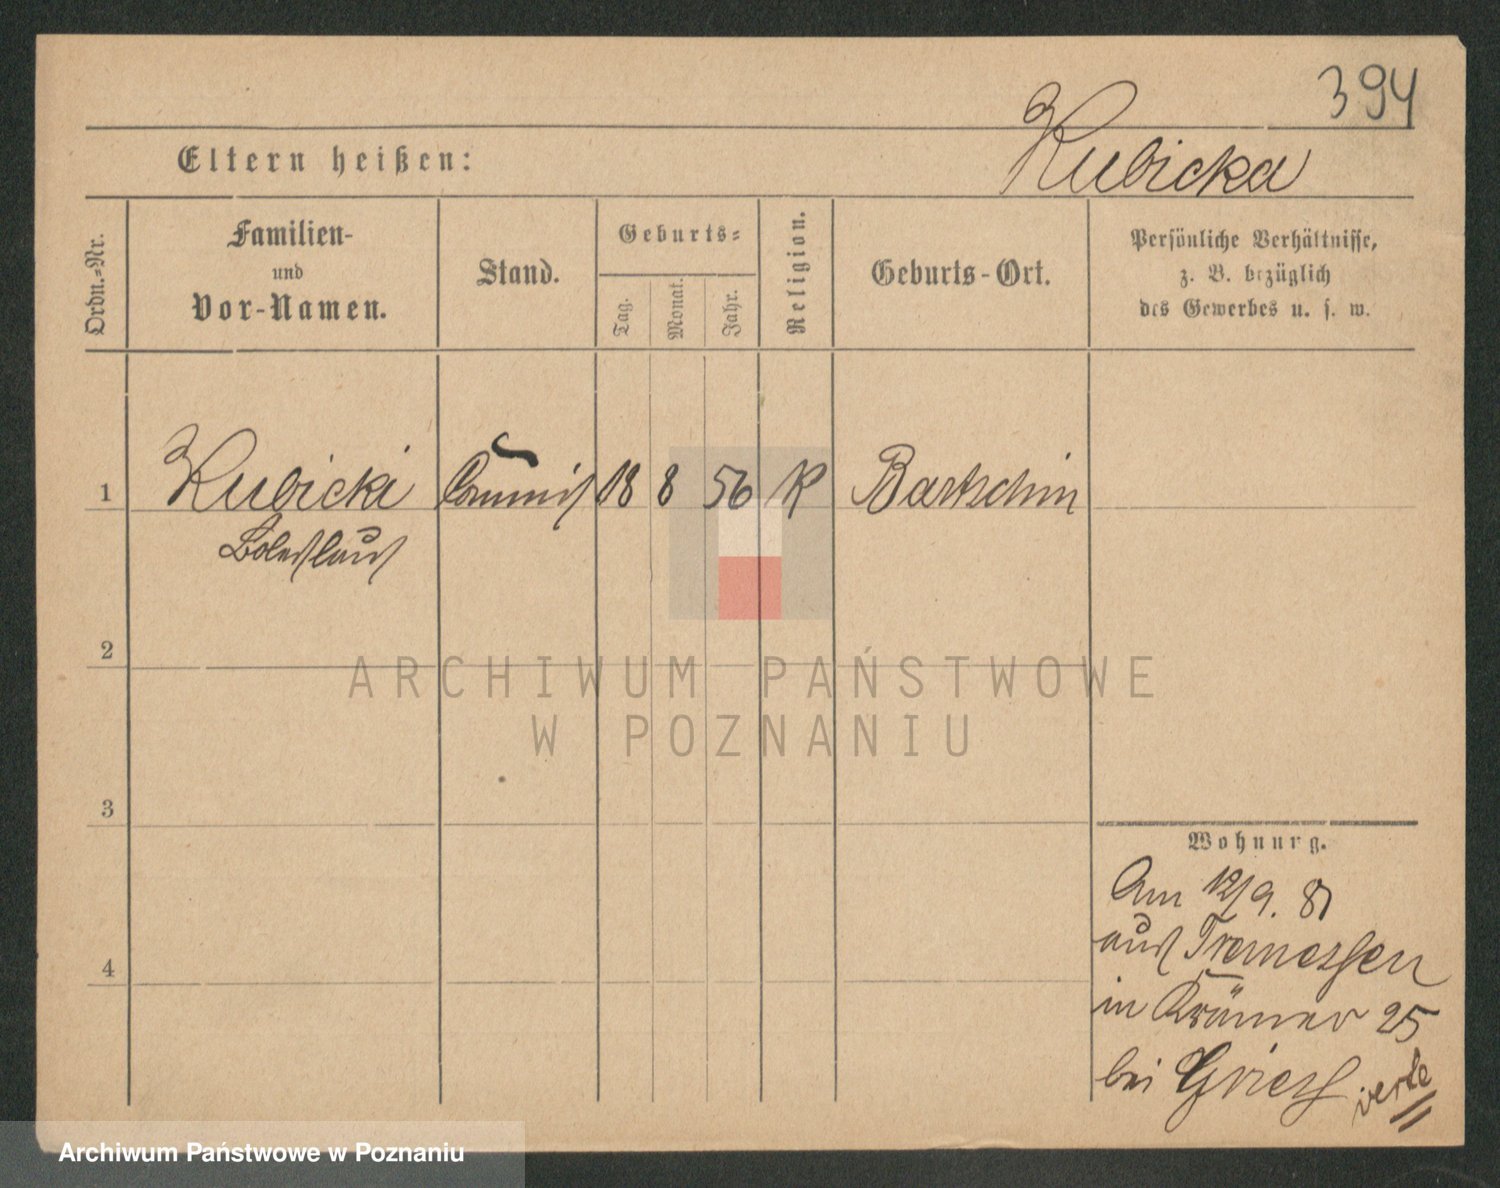 394
Eltern heißen:
Kubicka
Ordn.=Nr.
Familien-
und
Vor-Namen.
Stand.
Geburts=
Tag.
Monat.
Jahr.
Religion.
Geburts-Ort.
Persönliche Verhältnisse,
z. B. bezüglich
des Gewerbes u. s. w.
1 Kubicki Commis 18 8 56 K Bartschin
Boleslaus
2
ARCHIWUM PAŃSTWOWE
W POZNANIU
3
Wohnung.
Am 12/9. 81
aus Tremessen
4
in Krämer 25
bei Griess
Archiwum Państwowe w Poznaniu